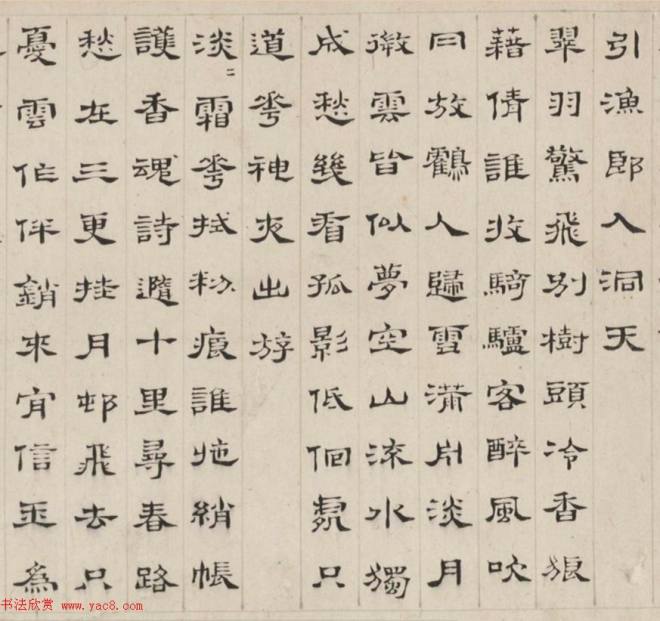 引漁郎入洞天
翠羽驚飛別樹頭冷香狼
藉倩誰收騎驢客醉風吹
冃放鶴人歸雪滿舟淡月
微雲皆似夢空山流水獨
成愁幾看孤影低佪處只
道蕐神夜出斿
淡〻霜蕐拭粉痕誰施綃帳
護香魂詩隨十里尋春路
愁在三更挂月邨飛去只
憂雲作伴銷來肎信玉為
书法欣赏 www.yac8.com